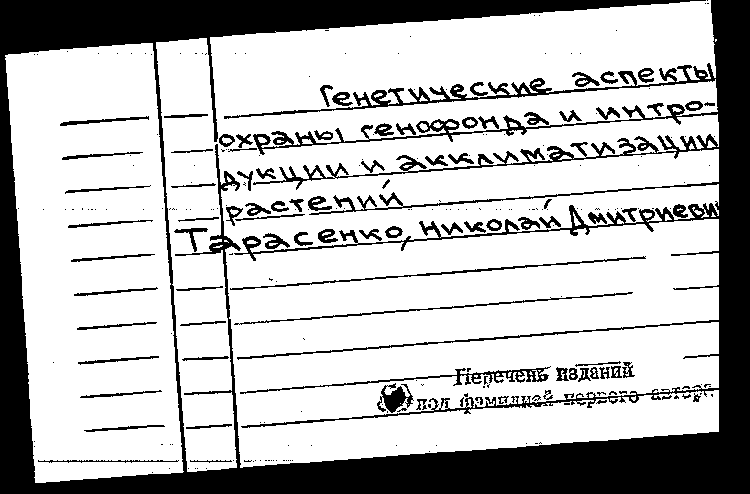 Генетические аспекты
охраны генофонда и интро-
дукции и акклиматизации
растений
Тарасенко, Николай Дмитриеви
Перечень изданий
под фамилией первого автора